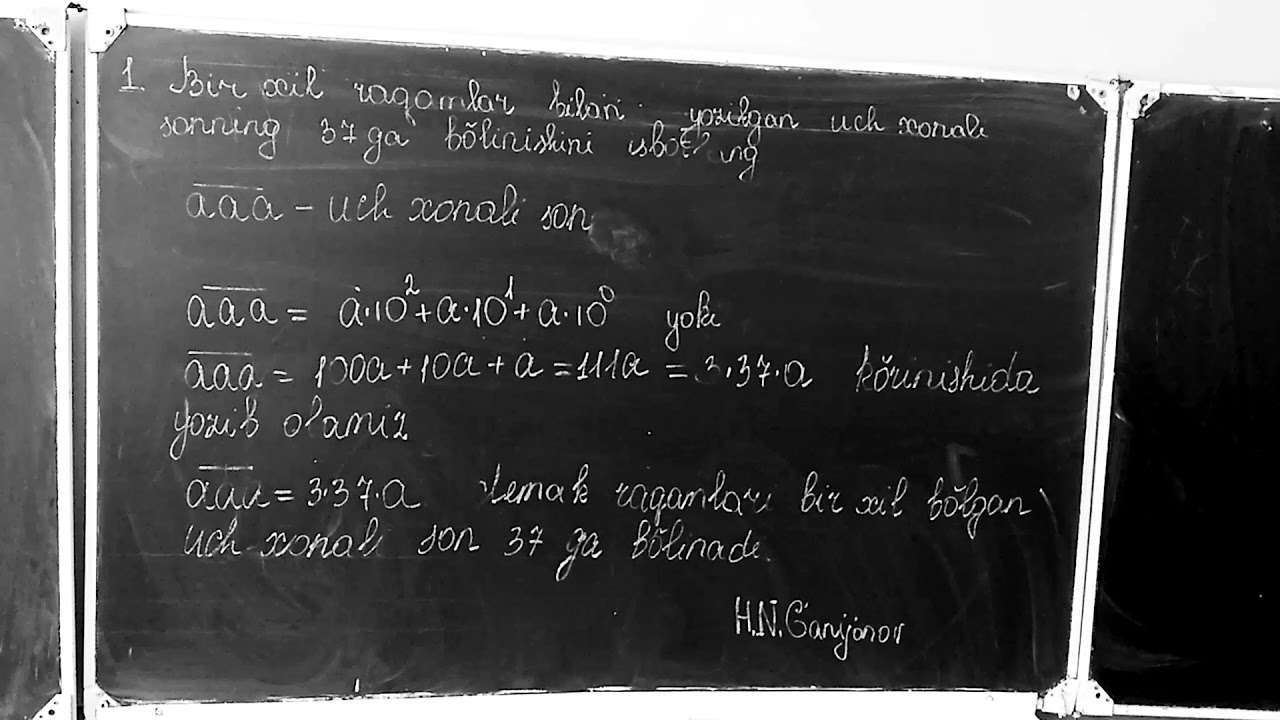 1. Bir xil raqamlar bilan yozilgan uch xonali
sonning 37 ga bõlinishini isbotlang
a̅a̅a̅ - uch xonali son
a̅a̅a̅ = a·10²+a·10¹+a·10⁰ yoki
a̅a̅a̅ = 100a+10a+a=111a=3·37·a kõrinishida
yozib olamiz
a̅a̅a̅=3·37·a demak raqamlari bir xil bõlgan
uch xonali son 37 ga bõlinadi.
H.N.Ganijonov